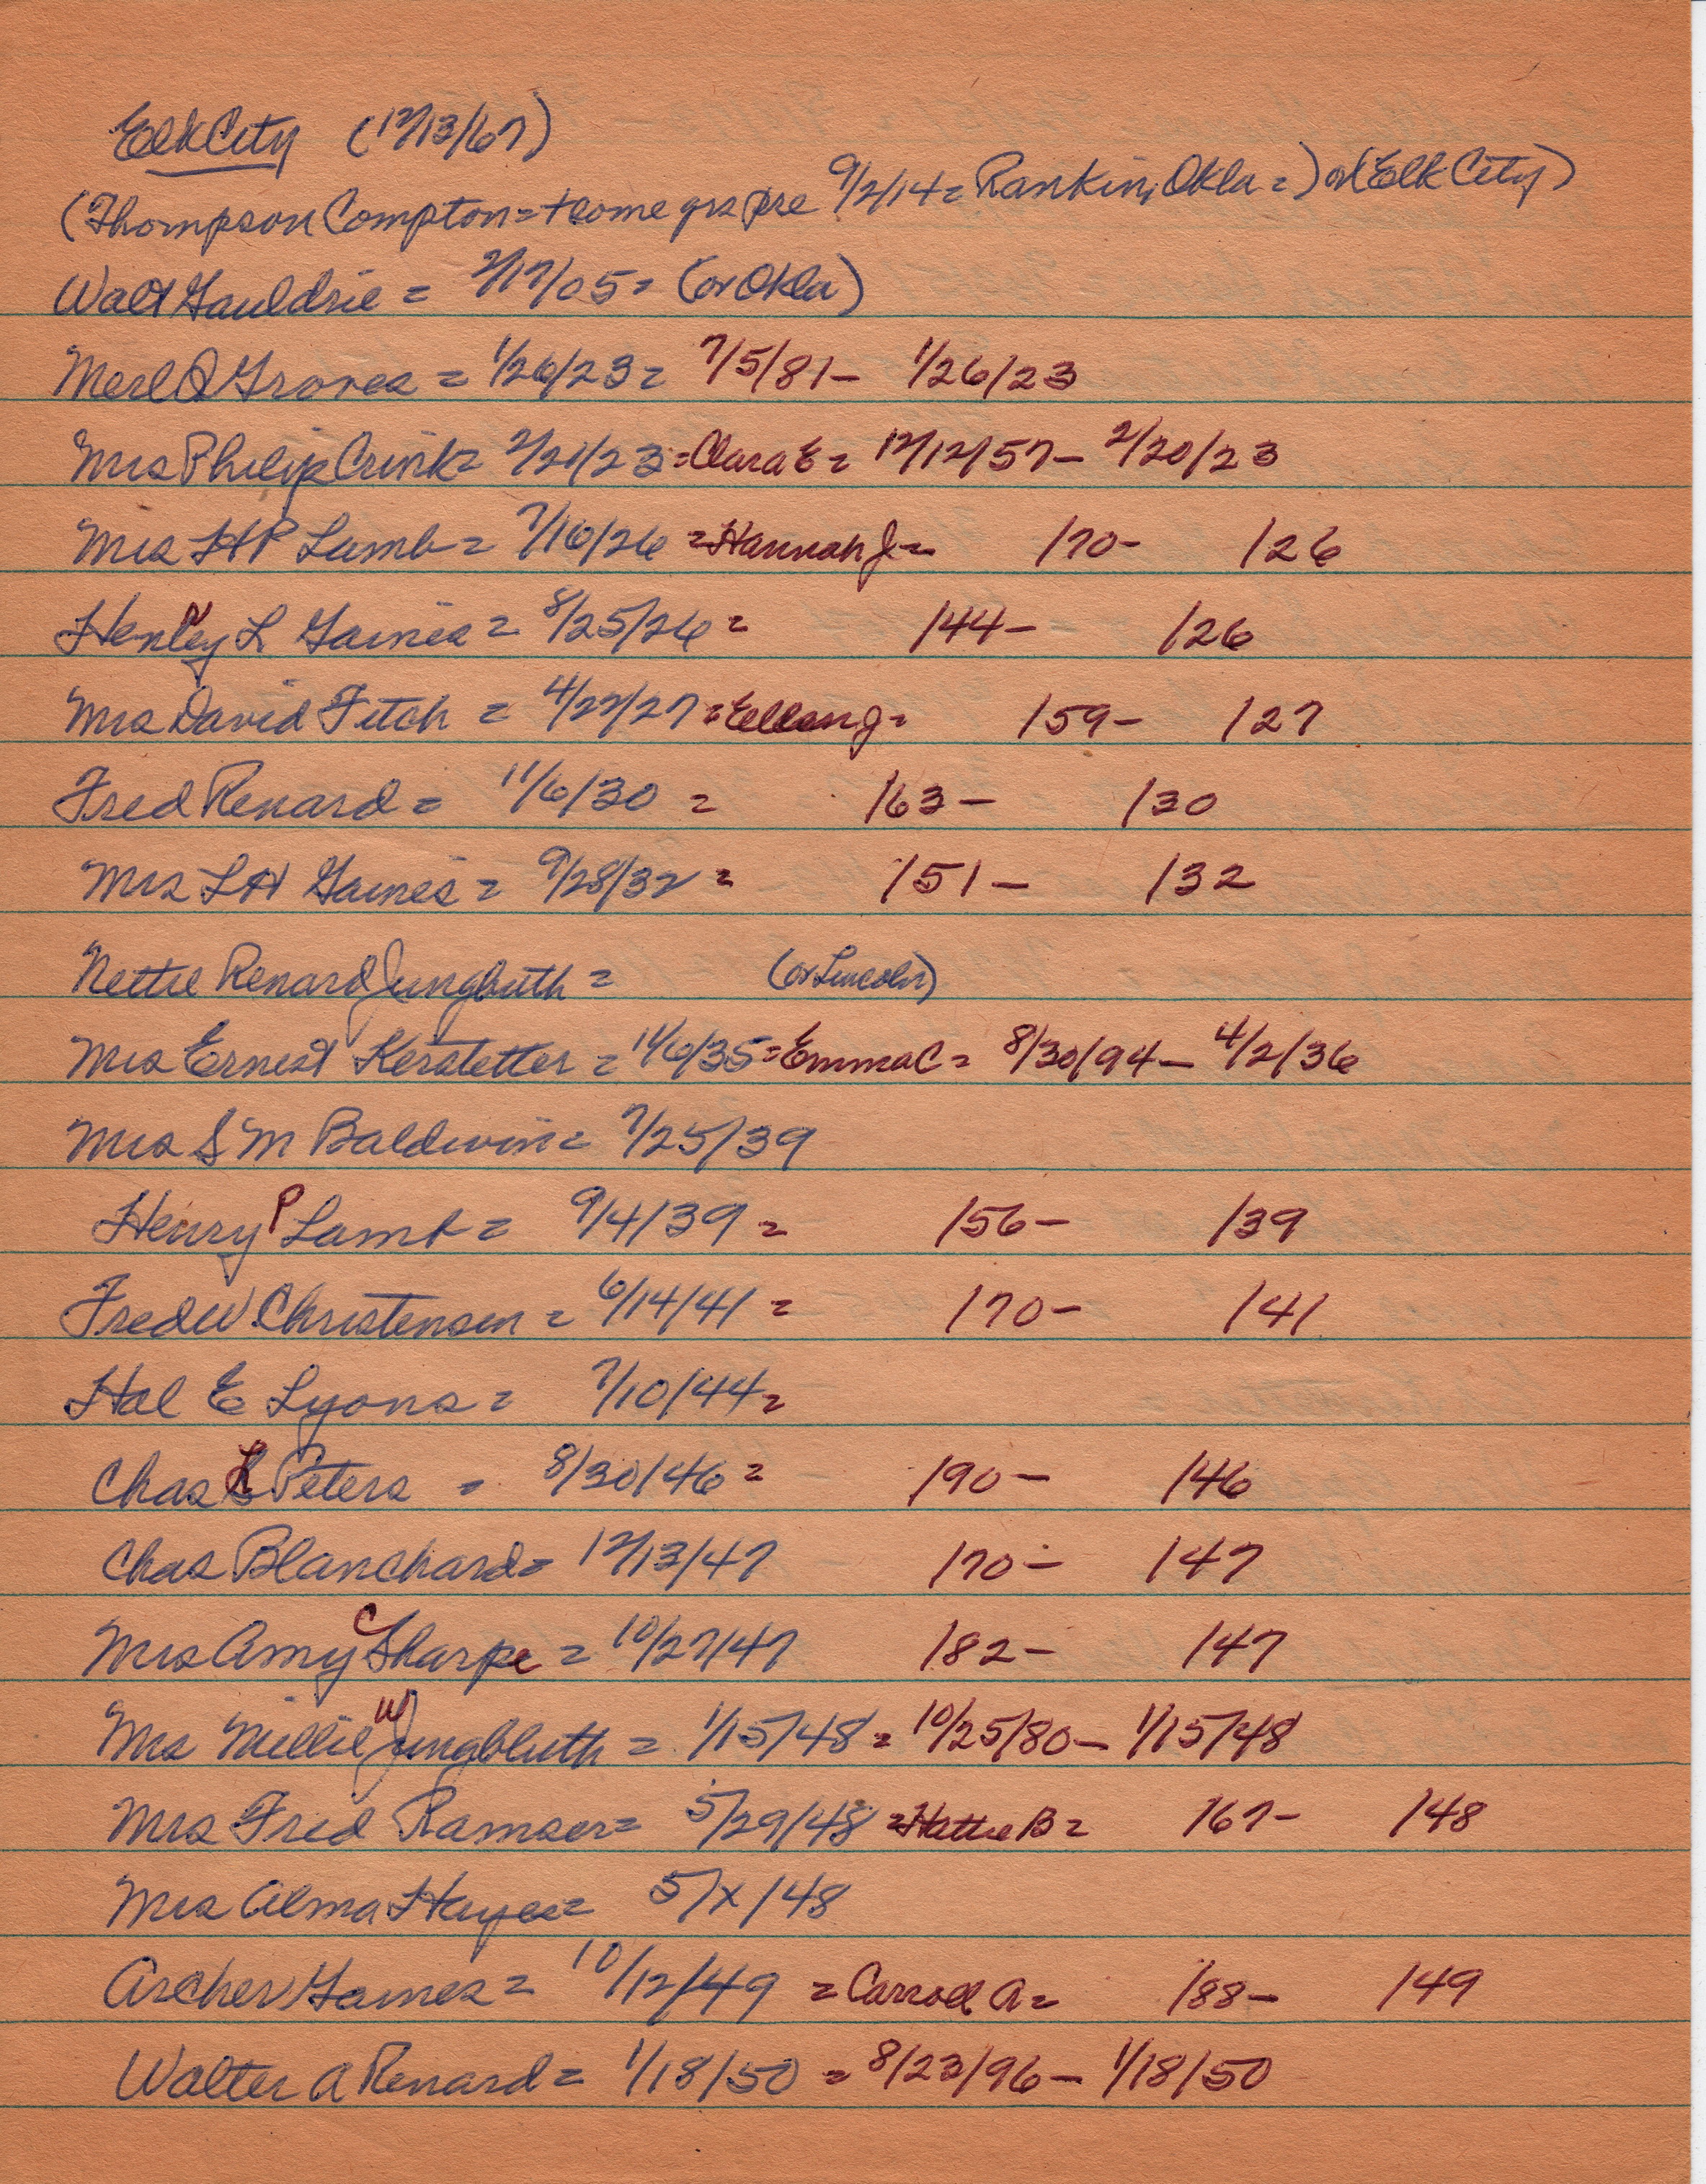 Elk City (12/13/67)
(Thompson Compton = + come grs pre 9/2/14 = Rankin, Okla =) or (Elk City)
Walt Gauldrie = 2/17/05 = (or Okla)
Merl Q Groves = 1/26/23 = 7/5/81 - 1/26/23
Mrs Philip Crink = 2/21/23 = Clara E = 12/12/57 - 2/20/23
Mrs H P Lamb = 7/16/26 = Hannah J = /70 - /26
Henley L Gaines = 8/25/26 = /44 - /26
Mrs David Fitch = 4/22/27 = Ellen J = /59 - /27
Fred Renard = 11/6/30 = /63 - /30
Mrs L H Gaines = 9/28/32 = /51 - /32
Nettie Renard Jungbuth = (or Lincoln)
Mrs Ernest Kerstetter = 11/6/35 = Emma C = 8/30/94 - 4/2/36
Mrs S M Baldwin = 7/25/39
Henry P Lamb = 9/4/39 = /56 - /39
Fred W Christensen = 6/14/41 = /70 - /41
Hal E Lyons = 7/10/44 =
Chas Peters = 8/30/46 = /90 - /46
Chas Blanchard = 12/13/47 /70 - /47
Mrs Amy C Sharpe = 10/27/47 /82 - /47
Mrs Millie W Jungbluth = 1/15/48 = 10/25/80 - 1/15/48
Mrs Fred Ramser = 5/29/48 = Hattie B = /67 - /48
Mrs Alma Hayes = 5/x/48
Archer Gaines = 10/12/49 = Carroll A = /88 - /49
Walter A Renard = 1/18/50 = 8/23/96 - 1/18/50